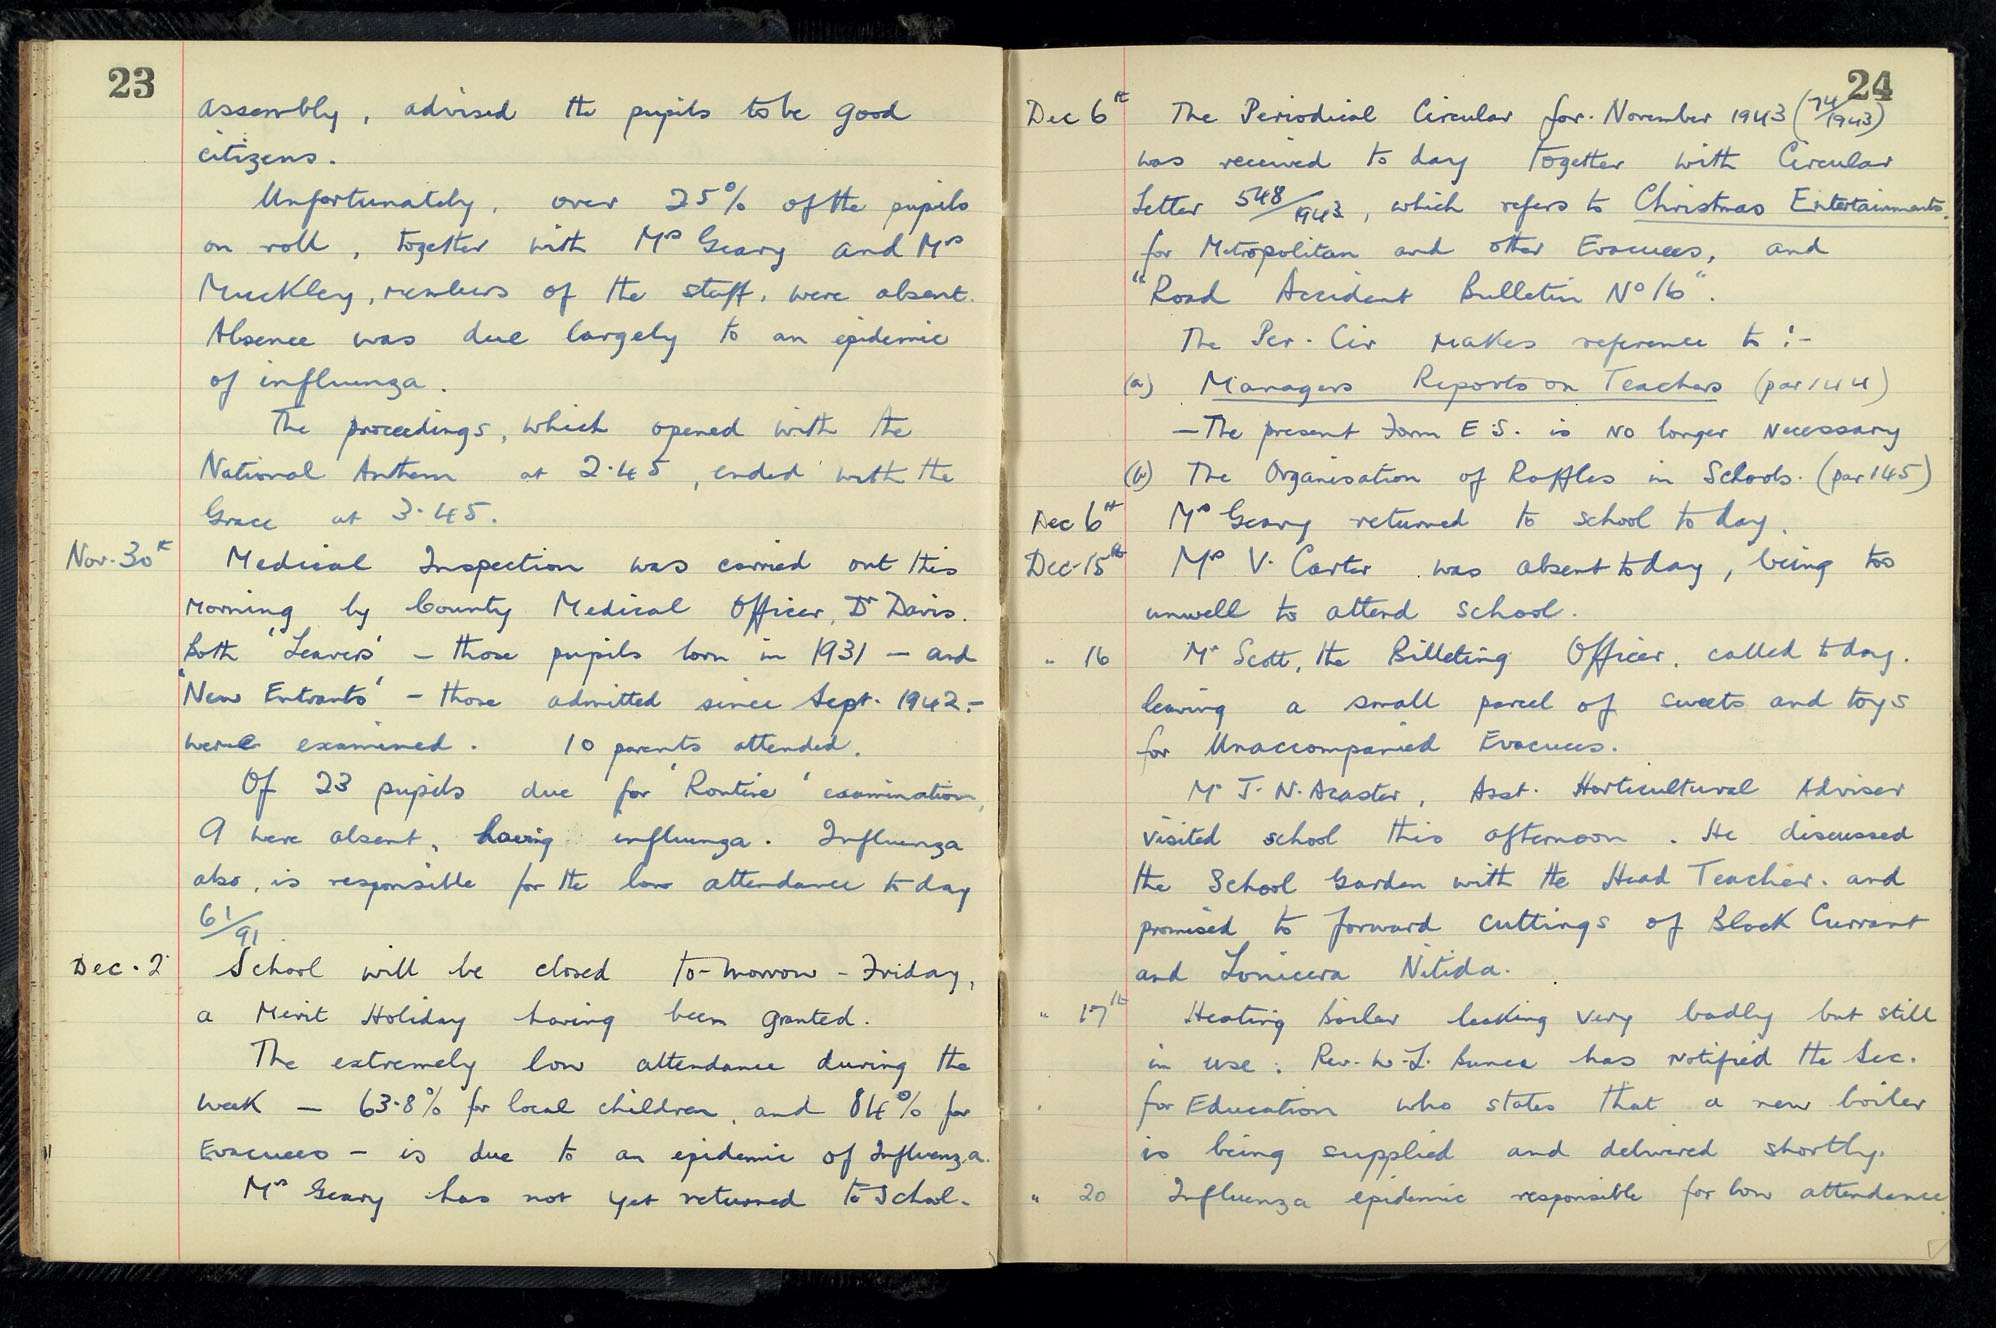 23
assembly, advised the pupils to be good
citizens.
Unfortunately, over 25% of the pupils
on roll, together with Mrs Geary and Mrs
Muckley, members of the staff, were absent.
Absence was due largely to an epidemic
of influenza.
The proceedings, which opened with the
National Anthem at 2.45, ended with the
Grace at 3.45.
Nov. 30th Medical Inspection was carried out this
morning by County Medical Officer, Dr Davis.
Both 'Leavers' - those pupils born in 1931 - and
'New Entrants' - those admitted since Sept. 1942 -
were examined. 10 parents attended.
Of 23 pupils due for 'Routine' examination,
9 were absent, having influenza. Influenza
also, is responsible for the low attendance to day
61/91.
Dec. 2 School will be closed to-morrow - Friday,
a Merit Holiday having been granted.
The extremely low attendance during the
week - 63.8% for local children, and 84% for
Evacuees - is due to an epidemic of Influenza.
Mrs Geary has not yet returned to School.
24
Dec 6th The Periodical Circular for November 1943 (74/1943)
was received to day together with Circular
Letter 548/1943, which refers to Christmas Entertainments,
for Metropolitan and other Evacuees, and
"Road Accident Bulletin No 16".
The Per. Cir makes reference to :-
(a) Managers Reports on Teachers (par 144)
- The present Form E.S. is no longer necessary
(b) The Organisation of Raffles in Schools. (par 145)
Dec 6th Mrs Geary returned to school to day.
Dec. 15th Mrs V. Carter was absent to day, being too
unwell to attend school.
" 16 Mr Scott, the Billeting Officer, called to day.
leaving a small parcel of sweets and toys
for Unaccompanied Evacuees.
Mr J. N. Acaster, Asst. Horticultural Adviser
visited school this afternoon. He discussed
the School Garden with the Head Teacher. and
promised to forward cuttings of Black Currant
and Lonicera Nitida.
" 17th Heating Boiler leaking very badly but still
in use. Rev. W. L. Bunce has notified the Sec.
for Education who states that a new boiler
is being supplied and delivered shortly.
" 20 Influenza epidemic responsible for low attendance.